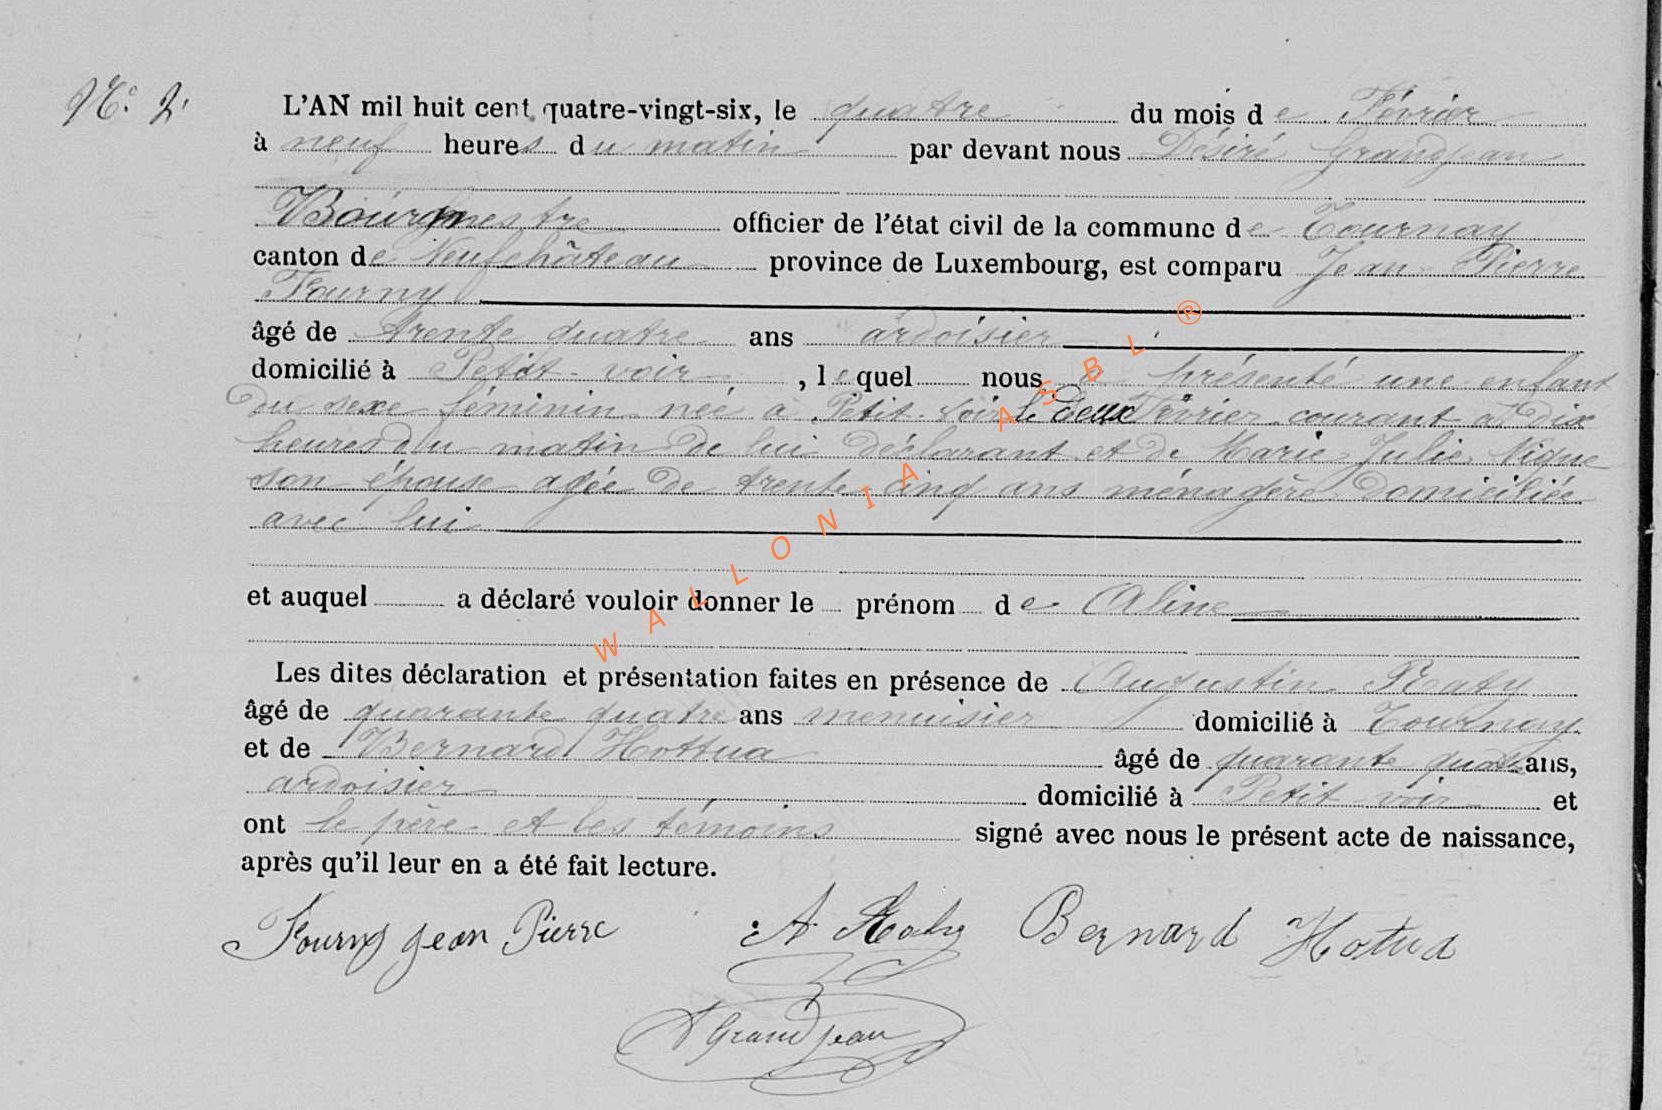 N° 2.
L'AN mil huit cent quatre-vingt-six, le quatre du mois de Février
à neuf heures du matin par devant nous Désiré Grandjean
Bourgmestre officier de l'état civil de la commune de Tournay
canton de Neufchâteau province de Luxembourg, est comparu Jean Pierre
Fourny
âgé de trente quatre ans ardoisier
domicilié à Petit-voir, lequel nous a présenté une enfant
du sexe féminin née à Petit-voir le deux Février courant à dix
heures du matin de lui déclarant et de Marie Julie Nique
son épouse agée de trente cinq ans ménagère domiciliée
avec lui
et auquel a déclaré vouloir donner le prénom de Aline
Les dites déclaration et présentation faites en présence de Augustin Raty
âgé de quarante quatre ans menuisier domicilié à Tournay
et de Bernard Hottua âgé de quarante quatre ans,
ardoisier domicilié à Petit voir et
ont le père et les témoins signé avec nous le présent acte de naissance,
après qu'il leur en a été fait lecture.
Fourny Jean Pierre A Raty Bernard Hotua
D Grandjean
WALLONIA ASBL ®